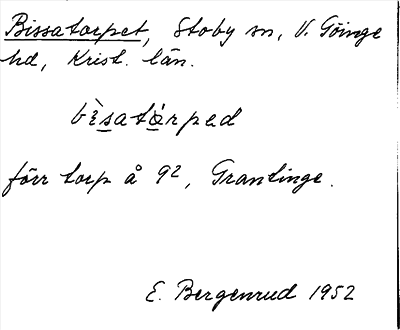 Bissatorpet, Stoby sn, V. Göinge
hd, Krist. län.
bìsatàrped
förr torp å 9², Grantinge.
E. Bergenrud 1952